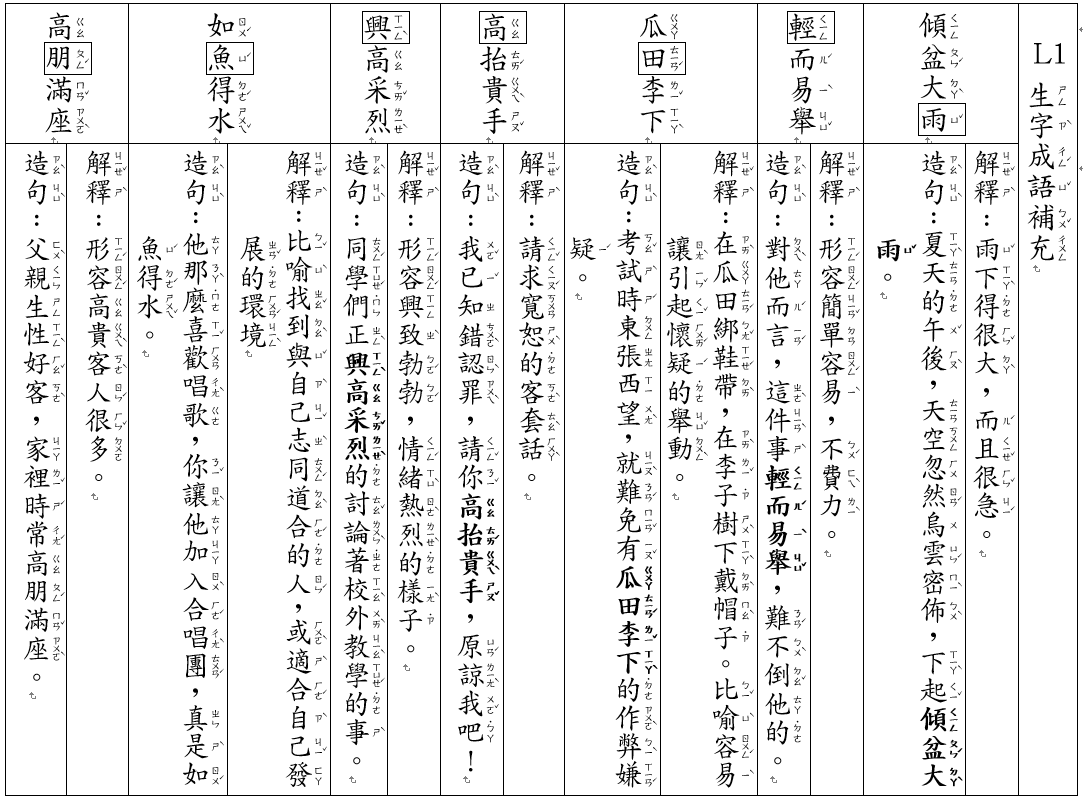 L1 生字成語補充
傾盆大雨
解釋：雨下得很大，而且很急。
造句：夏天的午後，天空忽然烏雲密佈，下起傾盆大
雨。
輕而易舉
解釋：形容簡單容易，不費力。
造句：對他而言，這件事輕而易舉，難不倒他的。
瓜田李下
解釋：在瓜田綁鞋帶，在李子樹下戴帽子。比喻容易
讓引起懷疑的舉動。
造句：考試時東張西望，就難免有瓜田李下的作弊嫌
疑。
高抬貴手
解釋：請求寬恕的客套話。
造句：我已知錯認罪，請你高抬貴手，原諒我吧！
興高采烈
解釋：形容興致勃勃，情緒熱烈的樣子。
造句：同學們正興高采烈的討論著校外教學的事。
如魚得水
解釋：比喻找到與自己志同道合的人，或適合自己發
展的環境
造句：他那麼喜歡唱歌，你讓他加入合唱團，真是如
魚得水。
高朋滿座
解釋：形容高貴客人很多。
造句：父親生性好客，家裡時常高朋滿座。